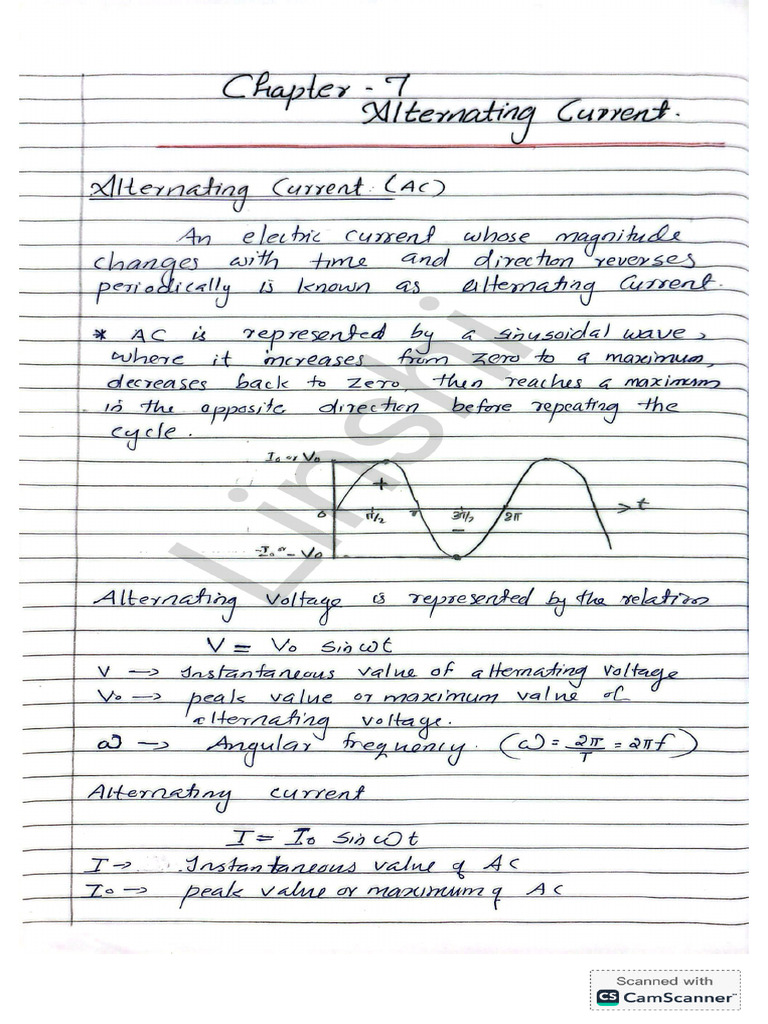 Chapter - 7
Alternating Current.
Alternating Current (AC)
An electric current whose magnitude
changes with time and direction reverses
periodically is known as alternating Current.
* AC is represented by a sinusoidal wave,
where it increases from zero to a maximum,
decreases back to zero, then reaches a maximum
in the opposite direction before repeating the
cycle.
I₀ or V₀
+
0 π/2 π 3π/2 2π → t
−
-I₀ or - V₀
Alternating Voltage is represented by the relation
V = V₀ sin ωt
V → Instantaneous value of alternating voltage
V₀ → peak value or maximum value of
alternating voltage.
ω → Angular frequency. (ω = 2π/T = 2πf)
Alternating current
I = I₀ sin ωt
I → Instantaneous value of AC
I₀ → peak value or maximum of AC
Linshi
Scanned with
CS CamScanner™